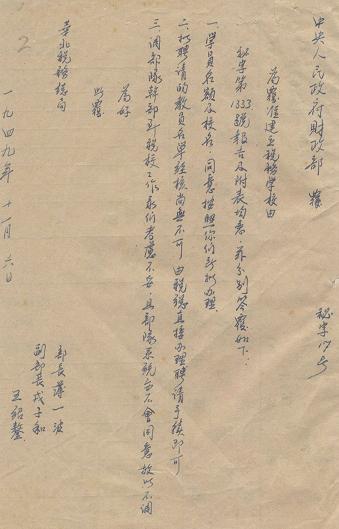 中央人民政府財政部 覆 秘字17号
為覆准建立税務學校由
秘字第1333號報告及附表均悉,茲分别答覆如下:
一、學員名額及校名,同意按照你们所拟办理。
二、拟聘请的教員名單經核尚無不可由税總直接办理聘请手續即可
三、調部隊幹部到税校工作我们考慮不妥,且部隊系統亦不會同意故以不調
為好
此覆
華北税務總局
部長薄一波
副部長戎子和
王紹鏊
一九四九年十一月六日
2